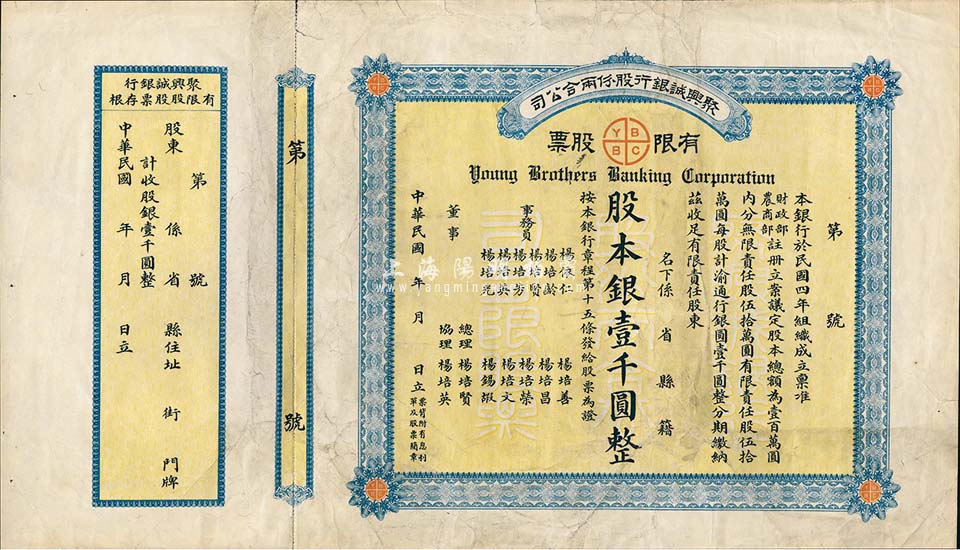 聚興誠銀行股份兩合公司
有限
股票
YBBC
Young Brothers Banking Corporation
第 號
本銀行於民國四年組織成立稟准
財政部
農商部註册立案議定股本總額為壹百萬圓
內分無限責任股伍拾萬圓有限責任股伍拾
萬圓每股計渝通行銀圓壹千圓整分期繳納
茲收足有限責任股東
名下係 省 縣籍
股本銀壹千圓整
按本銀行章程第十五條發給股票為證
事務員
楊依仁
楊培齡
楊培賢
楊培芳
楊培英
楊培光
楊培善
楊培昌
楊培榮
楊培文
楊錫嘏
董事
總理 楊培賢
協理 楊培英
中華民國 年 月 日立
票背附有息利
單及股票簡章
第 號
聚興誠銀行
有限股股票存根
第 號
股東 係 省 縣住址 街 門牌
計收股銀壹千圓整
中華民國 年 月 日立
上海陽明拍賣
www.yangmingauction.com